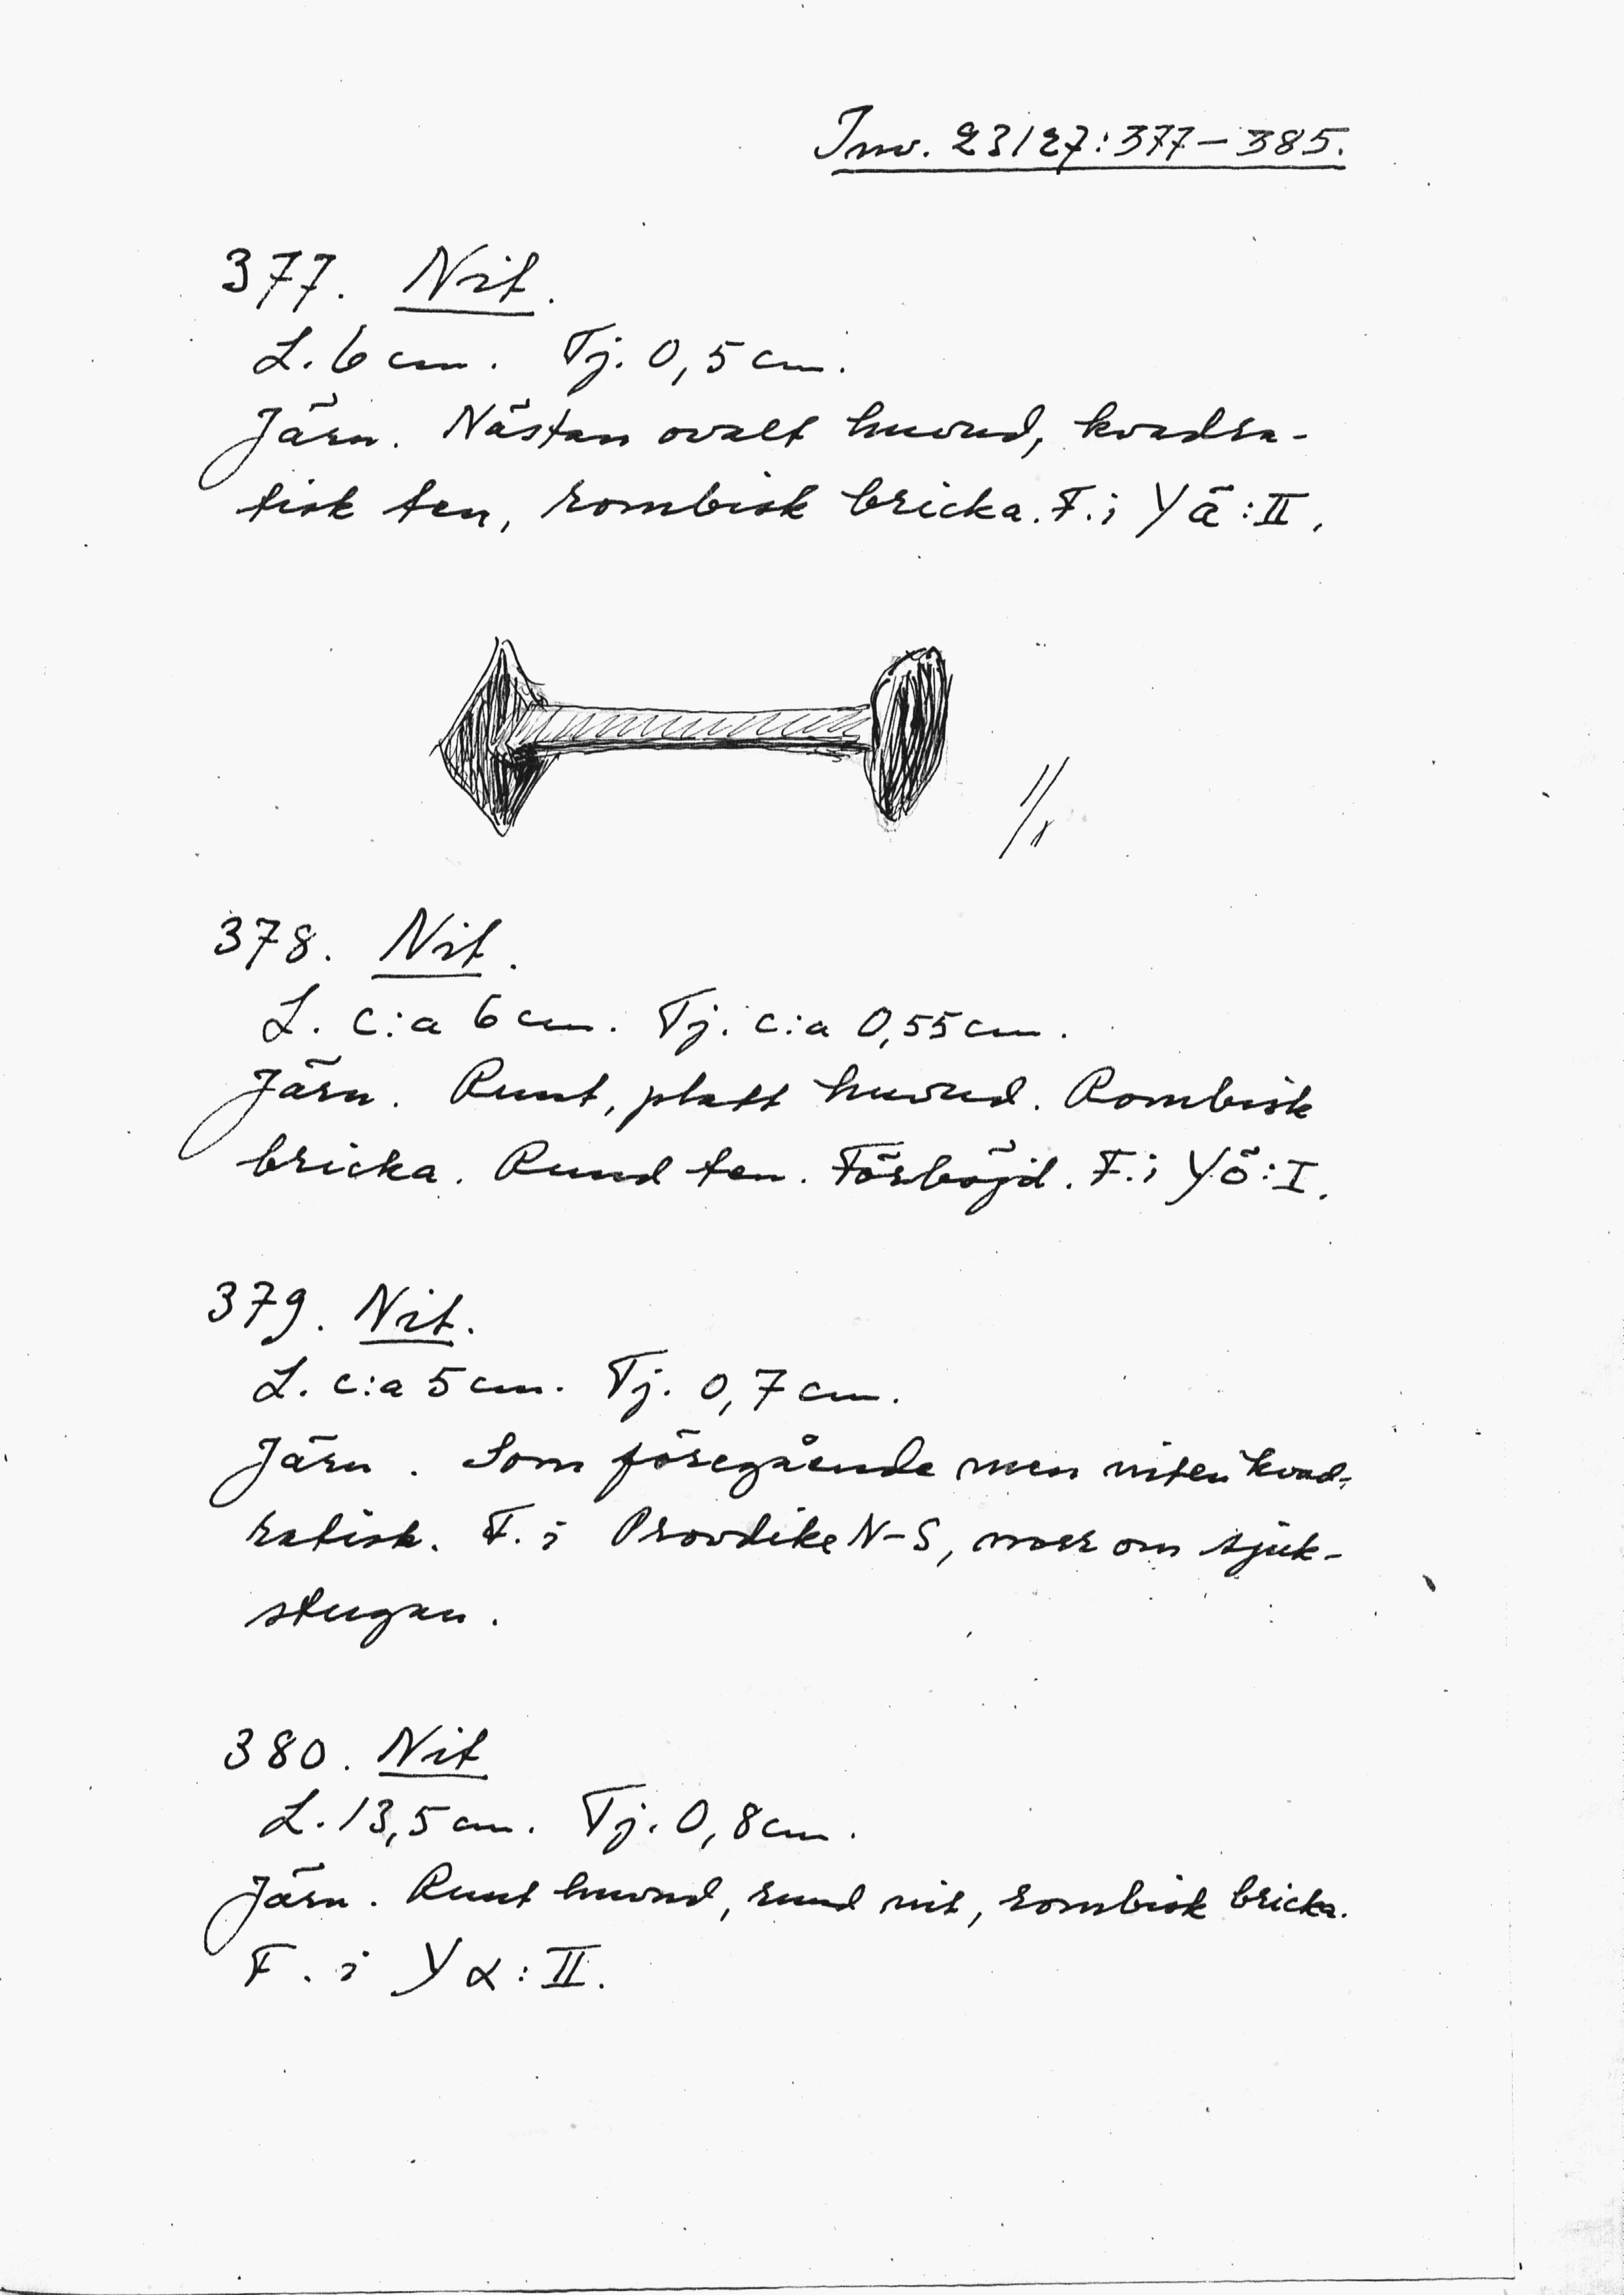 Inv. 23127:377-385.
377. Nit.
L. 6 cm. Tj. 0,5 cm.
Järn. Nästan ovalt huvud, kvadra-
tisk ten, rombisk bricka. F. i Yä:II.
1/1
378. Nit.
L. c:a 6 cm. Tj. c:a 0,55 cm.
Järn. Runt, platt huvud. Rombisk
bricka. Rund ten. Förböjd. F. i Yö:I.
379. Nit.
L. c:a 5 cm. Tj. 0,7 cm.
Järn. Som föregående men niten kvad-
ratisk. F. i Provdike N-S, norr om sjuk-
stugan.
380. Nit
L. 13,5 cm. Tj. 0,8 cm.
Järn. Runt huvud, rund nit, rombisk bricka.
F. i Yα:II.